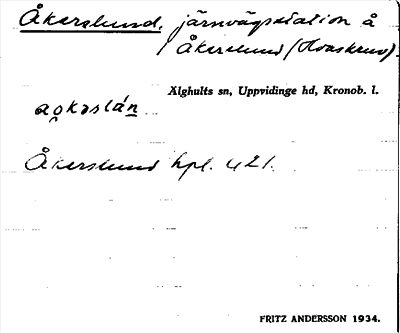 Åkerslund, järnvägsstation å
Åkerslund (Hvaskruv).
Älghults sn, Uppvidinge hd, Kronob. l.
aọkəslán
Åkerslund hpl. 421.
FRITZ ANDERSSON 1934.